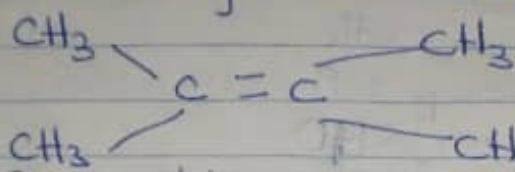 CH3 CH3
C = C
CH3 CH